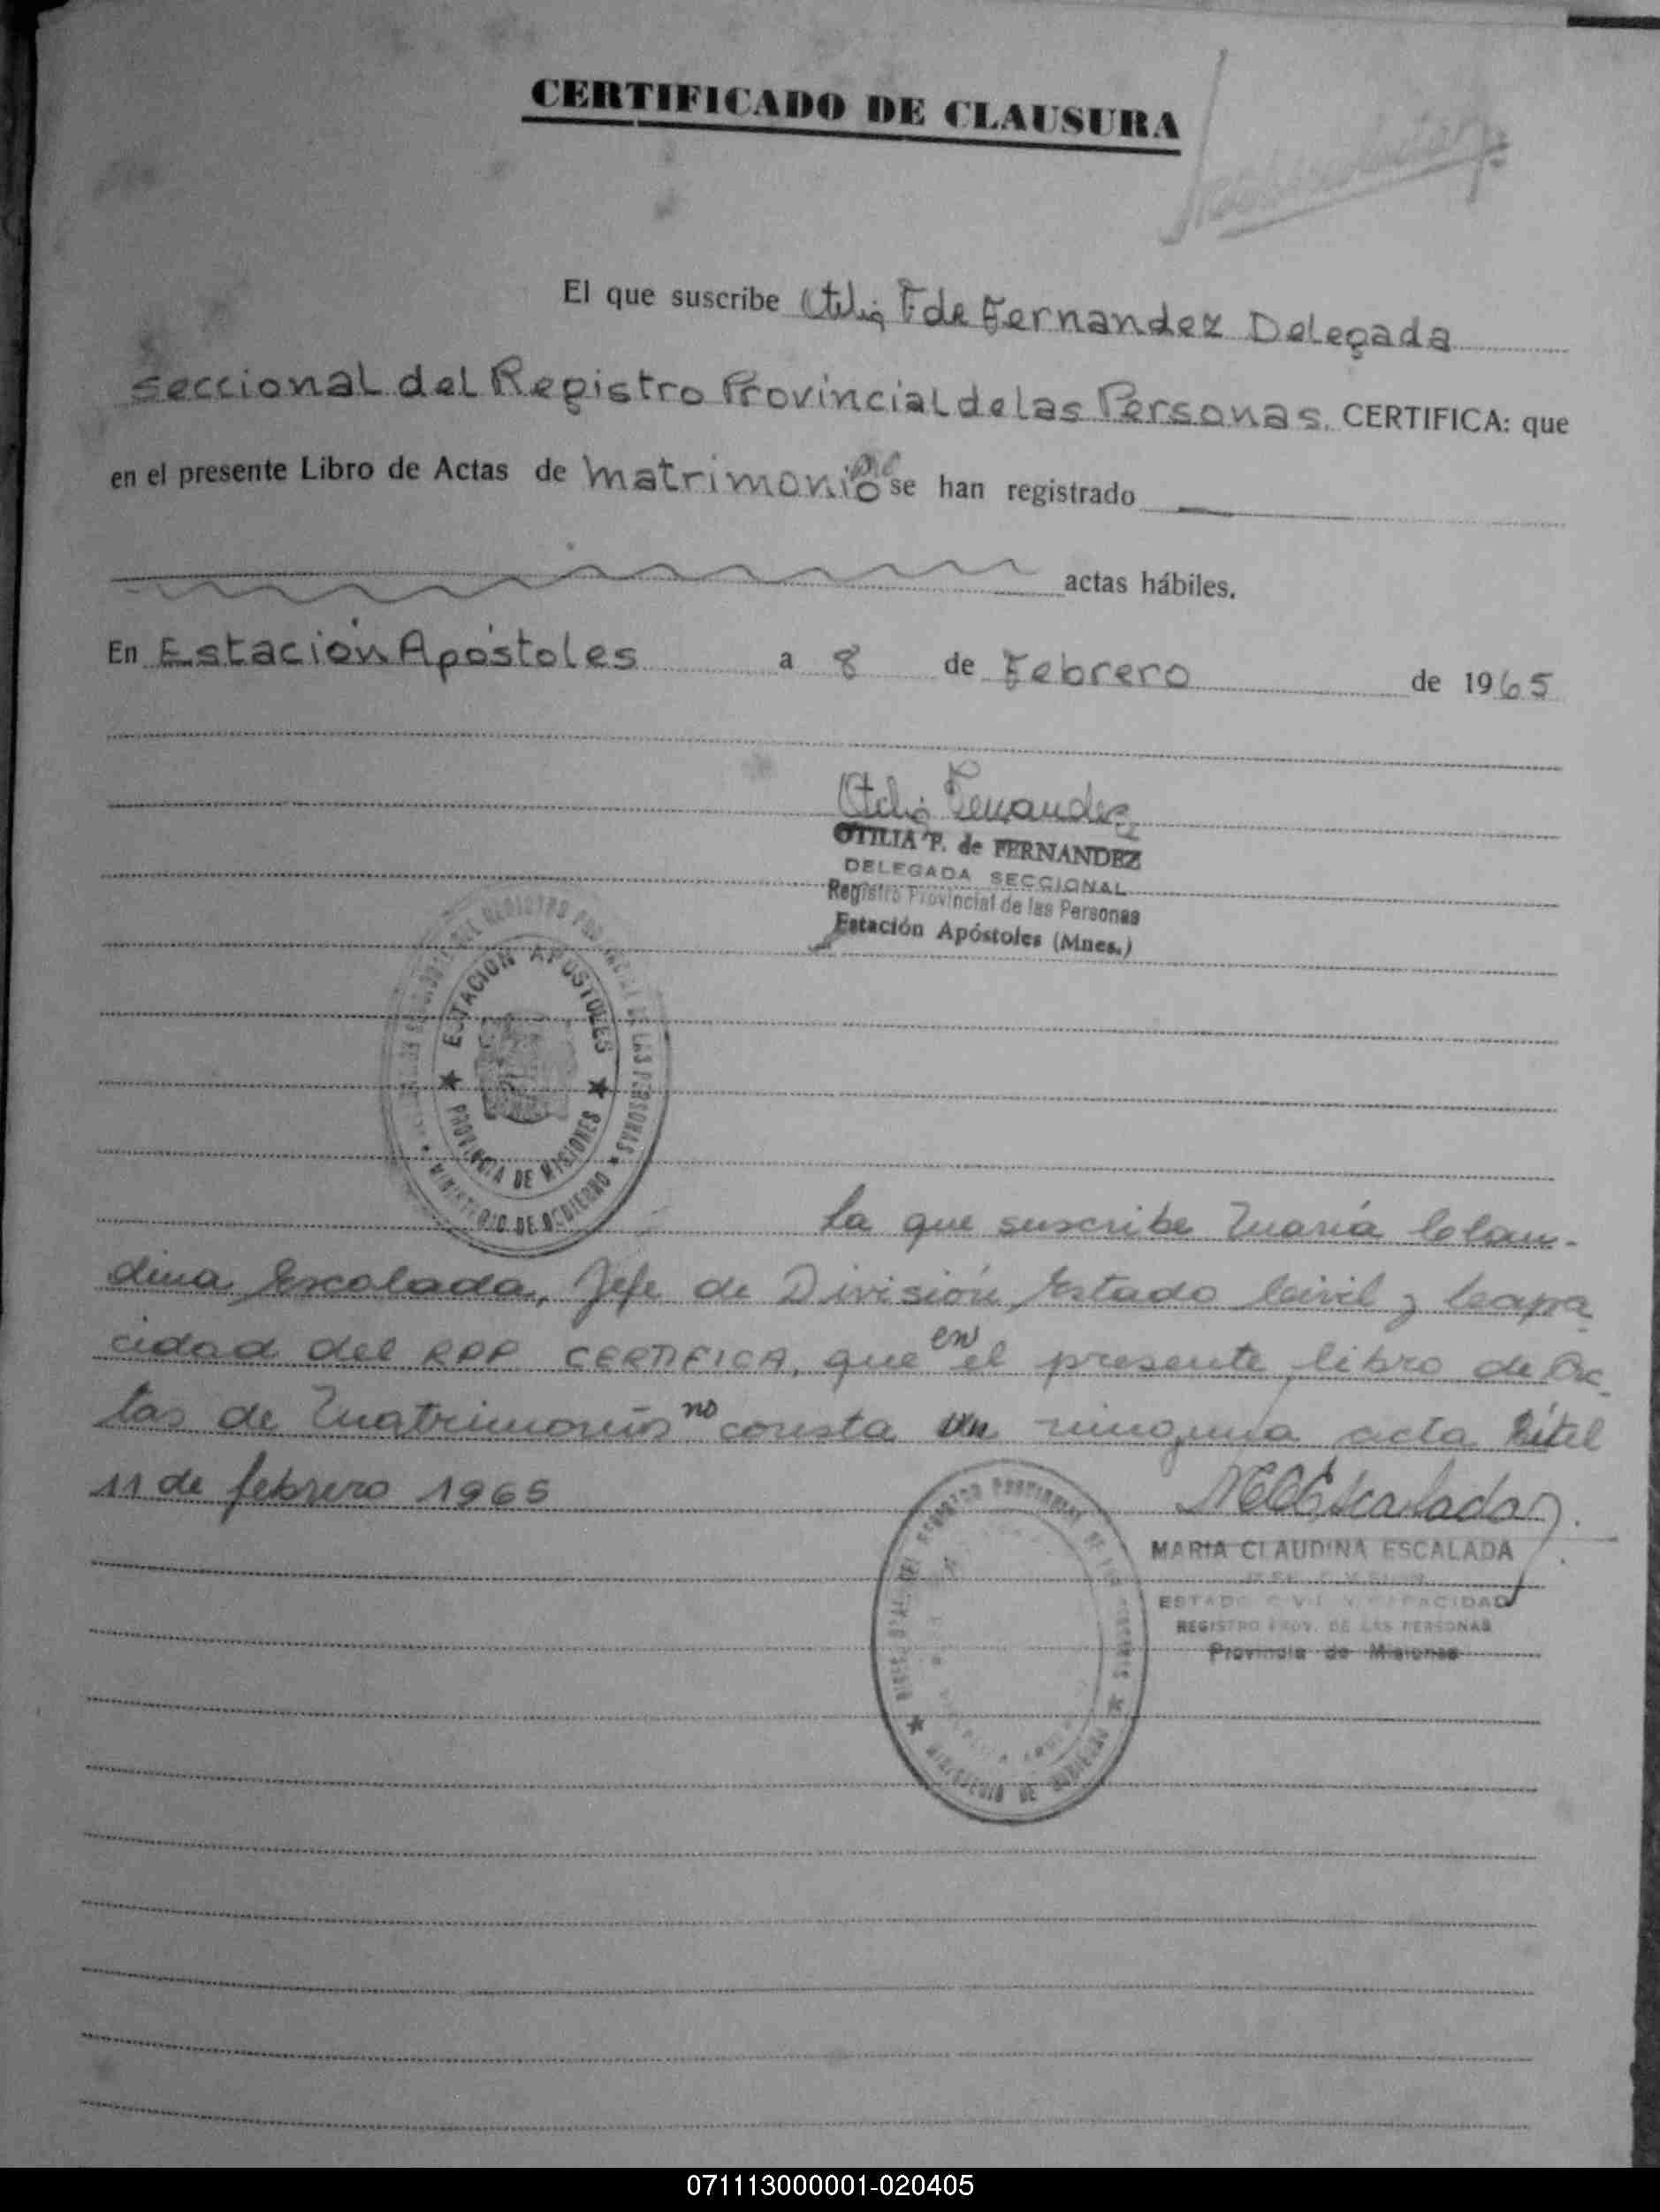 CERTIFICADO DE CLAUSURA
El que suscribe Otilia F de Fernandez Delegada
seccional del Registro Provincial de las Personas. CERTIFICA: que
en el presente Libro de Actas de matrimonio se han registrado
actas hábiles.
En Estación Apóstoles a 8 de Febrero de 1965
Otilia Fernandez
OTILIA F. de FERNANDEZ
DELEGADA SECCIONAL
Registro Provincial de las Personas
Estación Apóstoles (Mnes.)
ESTACION APOSTOLES
PROVINCIA DE MISIONES
DEL REGISTRO PROVINCIAL DE LAS PERSONAS
MINISTERIO DE GOBIERNO
La que suscribe María Clau-
dina Escalada, Jefe de División Estado Civil y Capa
cidad del RPP CERTIFICA, que en el presente libro de Ac-
tas de Matrimonios no consta ninguna acta
11 de febrero 1965
MCEscalada
MARIA CLAUDINA ESCALADA
ESTADO CIVIL Y CAPACIDAD
REGISTRO PROV. DE LAS PERSONAS
Provincia de Misiones
MINISTERIO DE GOBIERNO
071113000001-020405